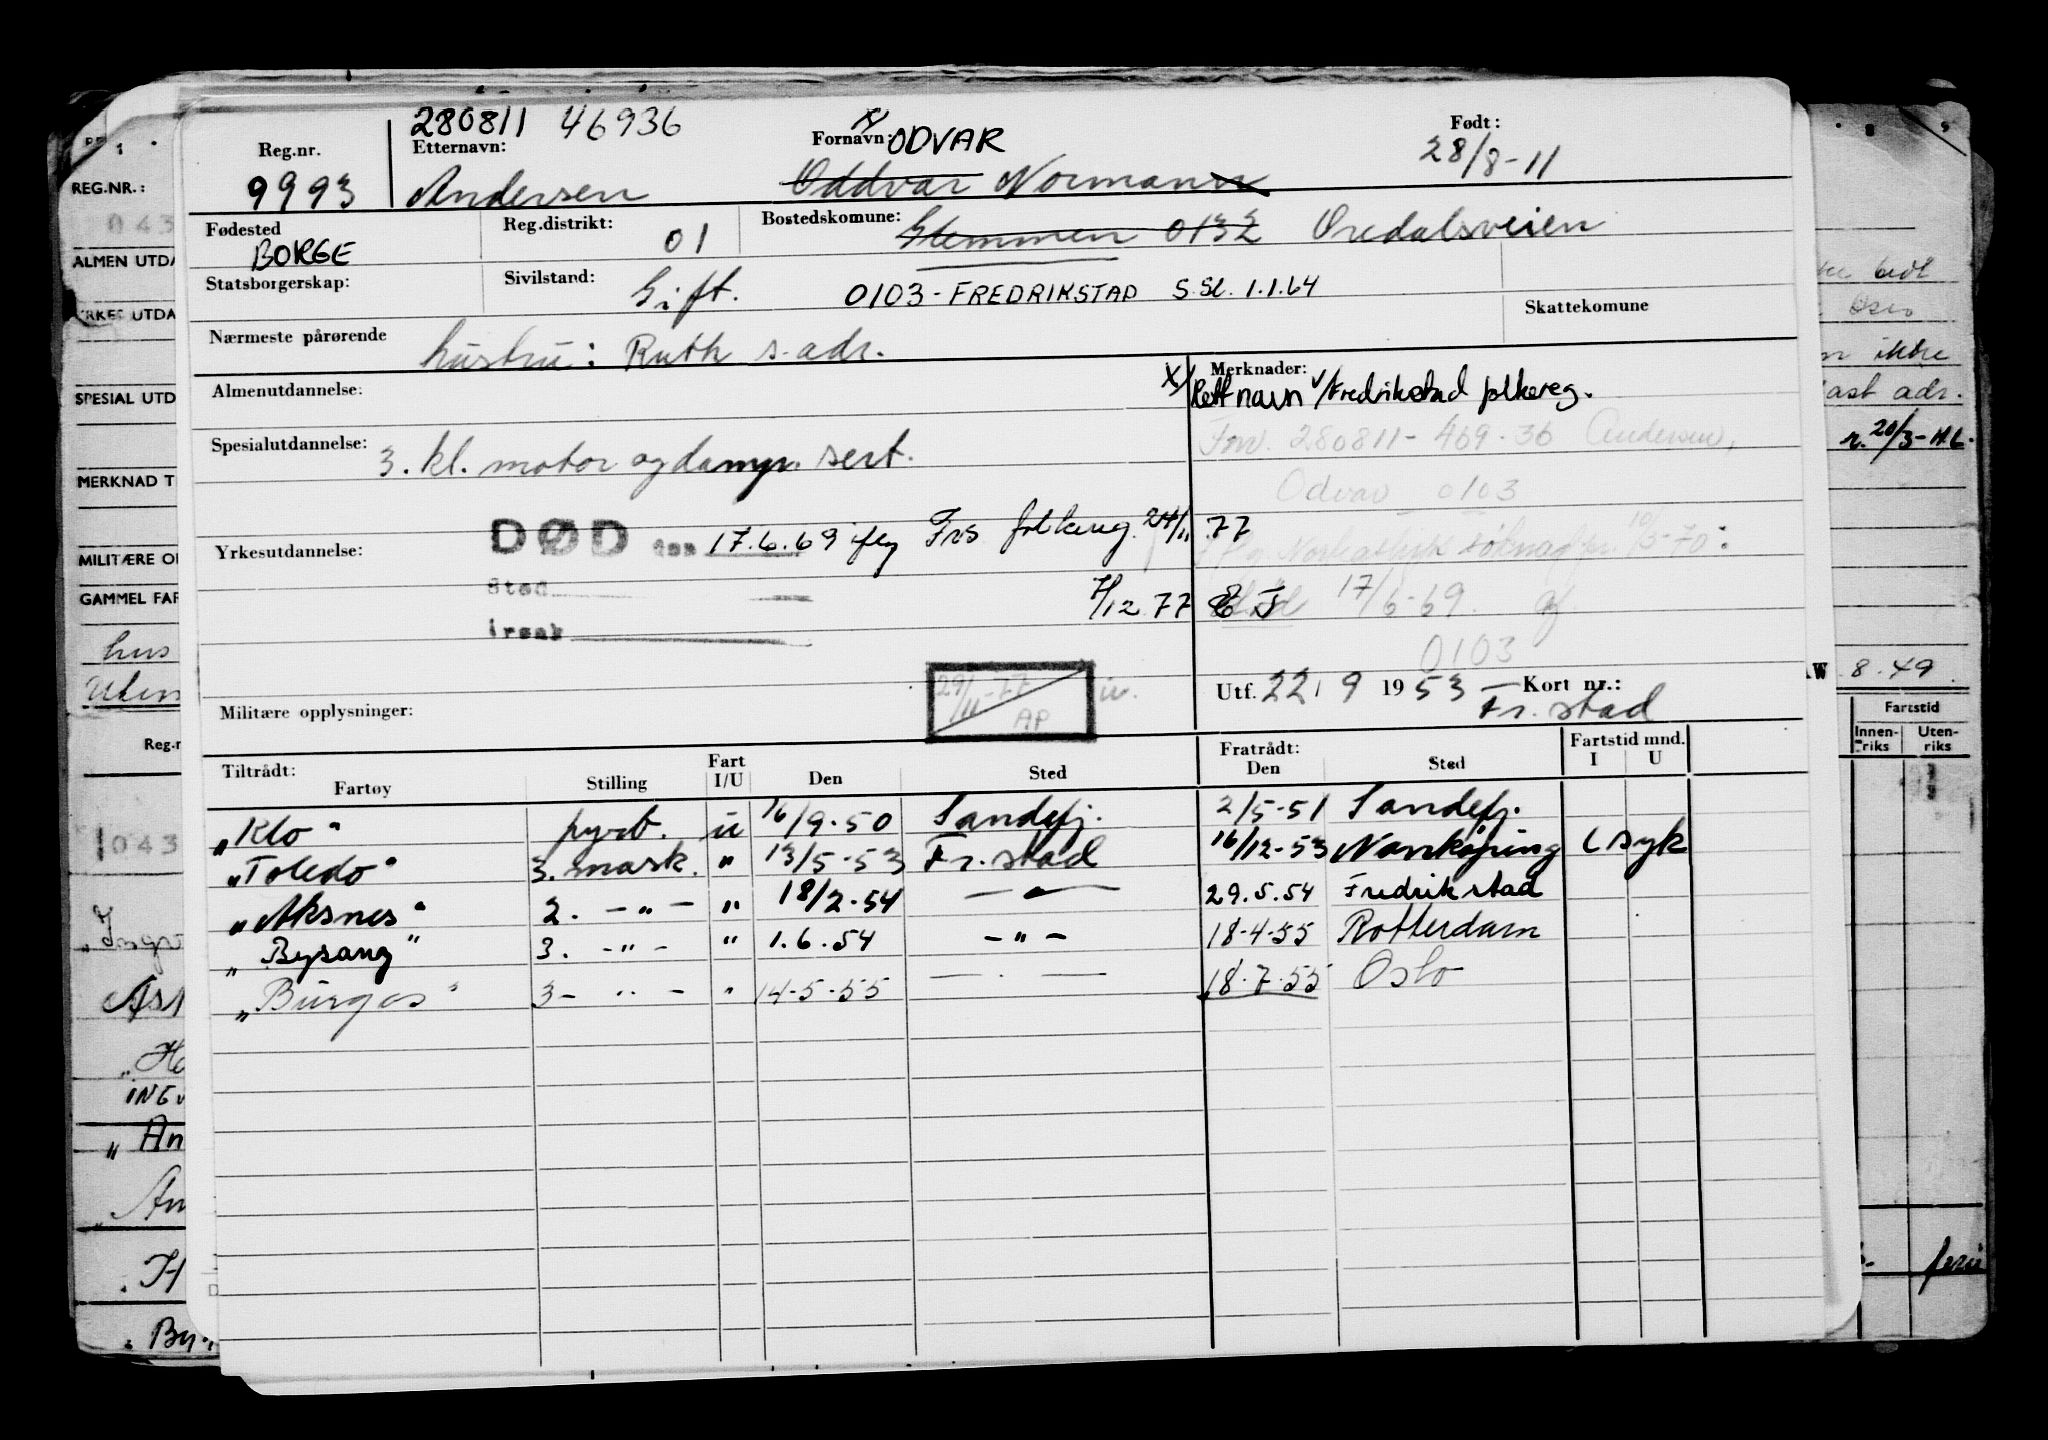 280811 46936
Reg.nr. Etternavn: Fornavn: ODVAR Født:
9993 Andersen Oddvar Normann 28/8-11
Fødested Reg.distrikt: Bostedskomune:
BORGE 01 Glemmen 0132 Oredalsveien
Statsborgerskap: Sivilstand:
Gift. 0103-FREDRIKSTAD S.Sl. 1.1.64
Skattekomune
Nærmeste pårørende
hustru: Ruth s. adr.
Almenutdannelse: Merknader:
x/ Rett navn v/Fredrikstad folkereg.
Spesialutdannelse:
3. kl. motor og damp. sert.
Fnr. 280811-469.36 Andersen,
Odvar 0103
DØD den 17.6.69 iflg Frs folkereg. 24/11.77
Yrkesutdannelse:
Sted 7/12.77 17/6-69.
årsak
0103
29/11-77
AP
Utf. 22/9 1953 Kort nr.:
Militære opplysninger: Fr.stad
Tiltrådt: Fratrådt: Fartstid mnd.
Fartøy Stilling Fart I/U Den Sted Den Sted I U
"Klo" pyrb. u 16/9-50 Sandefj. 2/5-51 Sandefj.
"Toledo" 3. mask. " 13/5-53 Fr.stad 16/12-53 Norrkøping (syk
"Aksnes" 2. -"- " 18/2-54 -"- 29.5.54 Fredrikstad
"Bysang" 3. -"- " 1.6.54 -"- 18-4-55 Rotterdam
"Burgos" 3- -"- " 14-5-55 -"- 18.7.55 Oslo
REG.NR.:
043
ALMEN UTDA
YRKES UTDA
SPESIAL UTD
MERKNAD T
MILITÆRE OP
GAMMEL FAR
hus
Reg.n
1043
"An
INGV
. By
ikke
fast adr.
r. 20/3-
8.49
Fartstid
Innen-riks Uten-riks